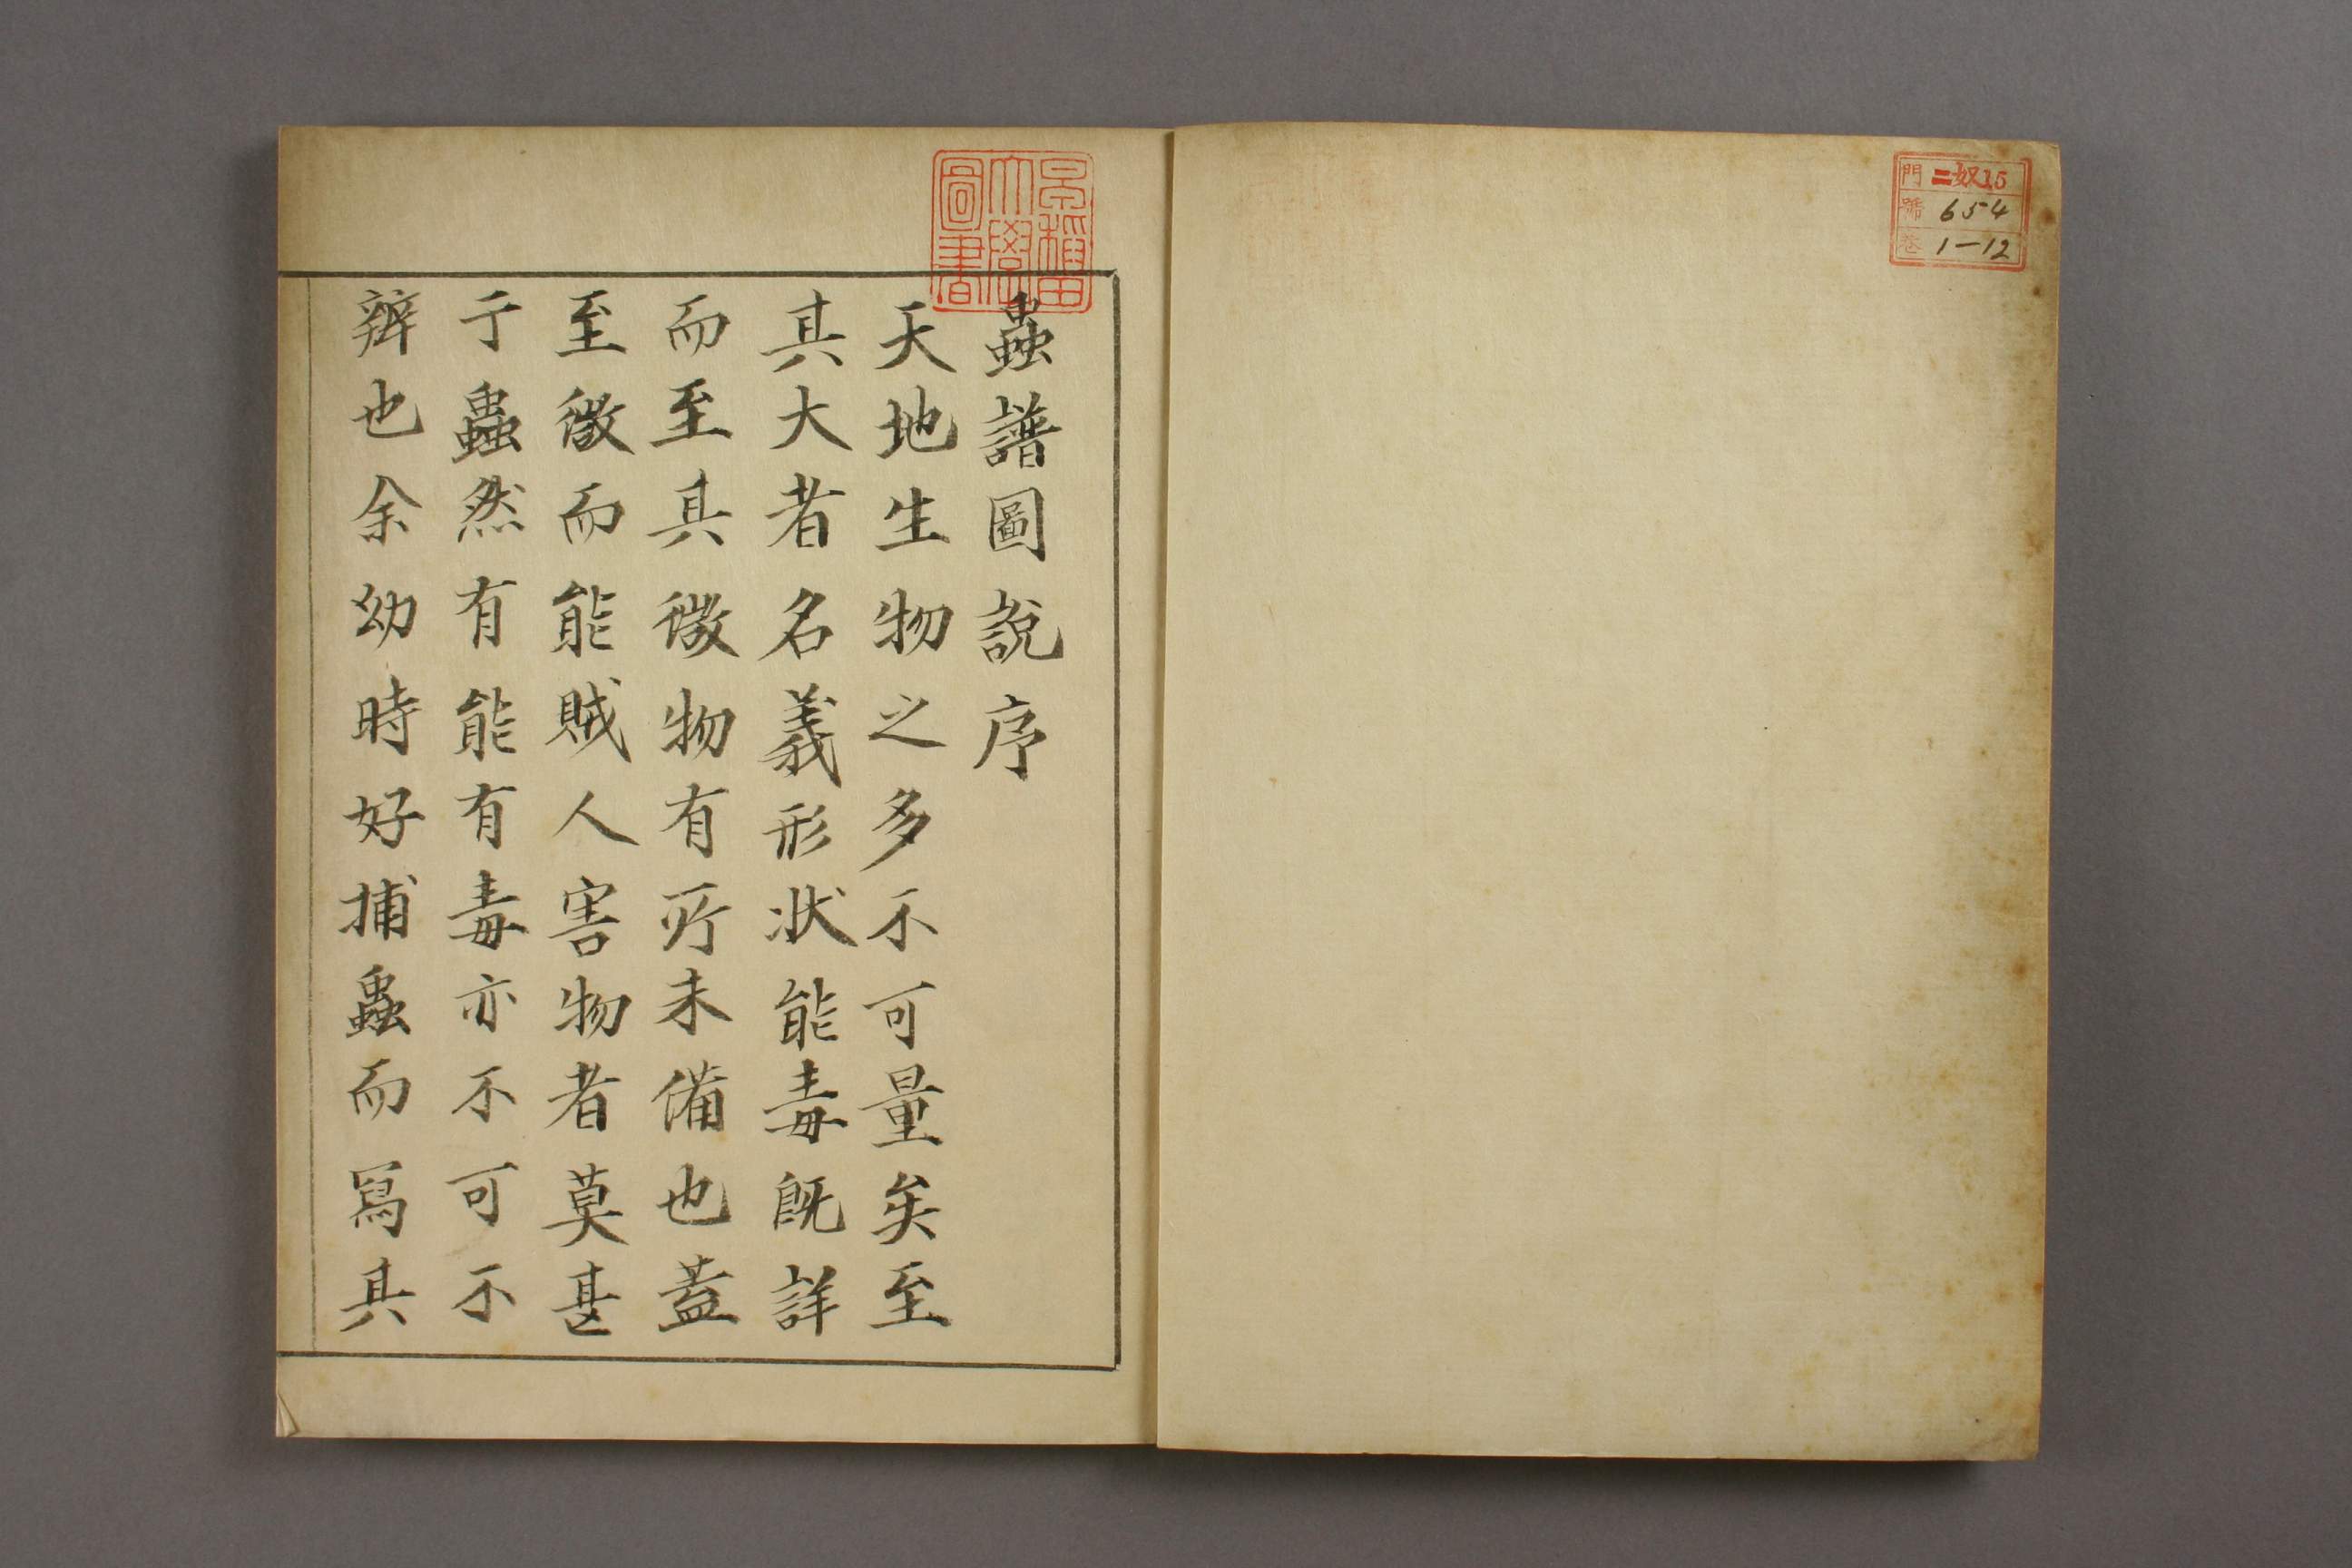 門 ニ奴15
號 654
巻 1-12
早稲田大學圖書
蟲譜圖說序
天地生物之多不可量矣至
其大者名義形狀能毒既詳
而至其微物有所未備也蓋
至微而能賊人害物者莫甚
于蟲然有能有毒亦不可不
辨也余幼時好捕蟲而寫其